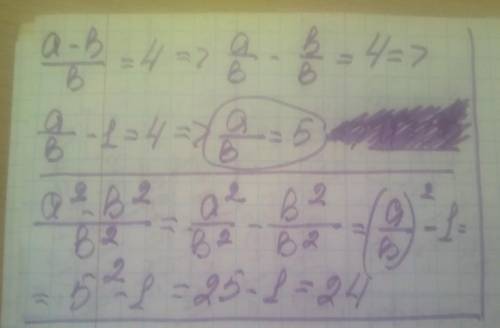 (a-b)/b = 4 => a/b - b/b = 4 =>
a/b - 1 = 4 => a/b = 5
(a²-b²)/b² = a²/b² - b²/b² = (a/b)² - 1 =
= 5² - 1 = 25 - 1 = 24